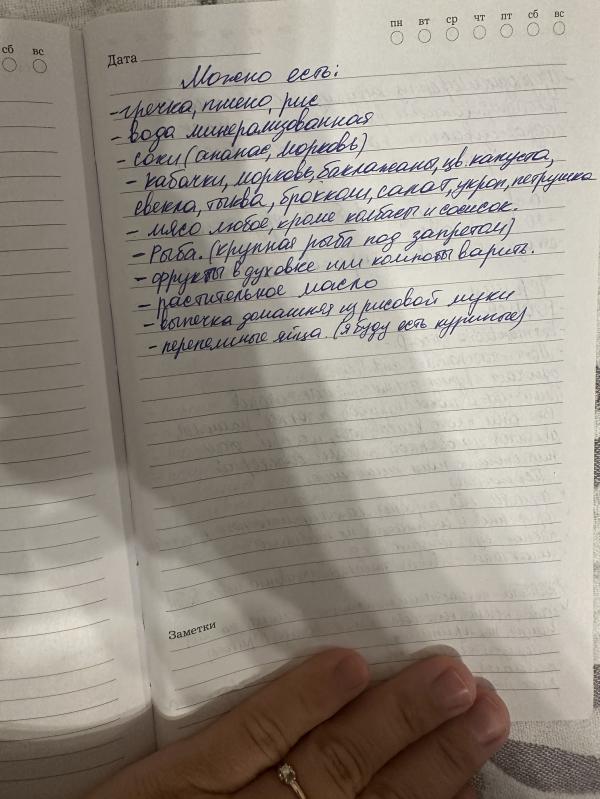 сб вс
пн вт ср чт пт сб вс
Дата
Можно есть:
- гречка, пшено, рис
- вода минерализованная
- соки (ананас, морковь)
- кабачки, морковь, баклажаны, цв. капуста,
свекла, тыква, брокколи, салат, укроп, петрушка
- мясо любое, кроме колбасы и сосисок.
- Рыба. (крупная рыба под запретом)
- фрукты в духовке или компоты варить.
- растительное масло
- выпечка домашняя из рисовой муки
- перепелиные яйца. (я буду есть куриные)
Заметки